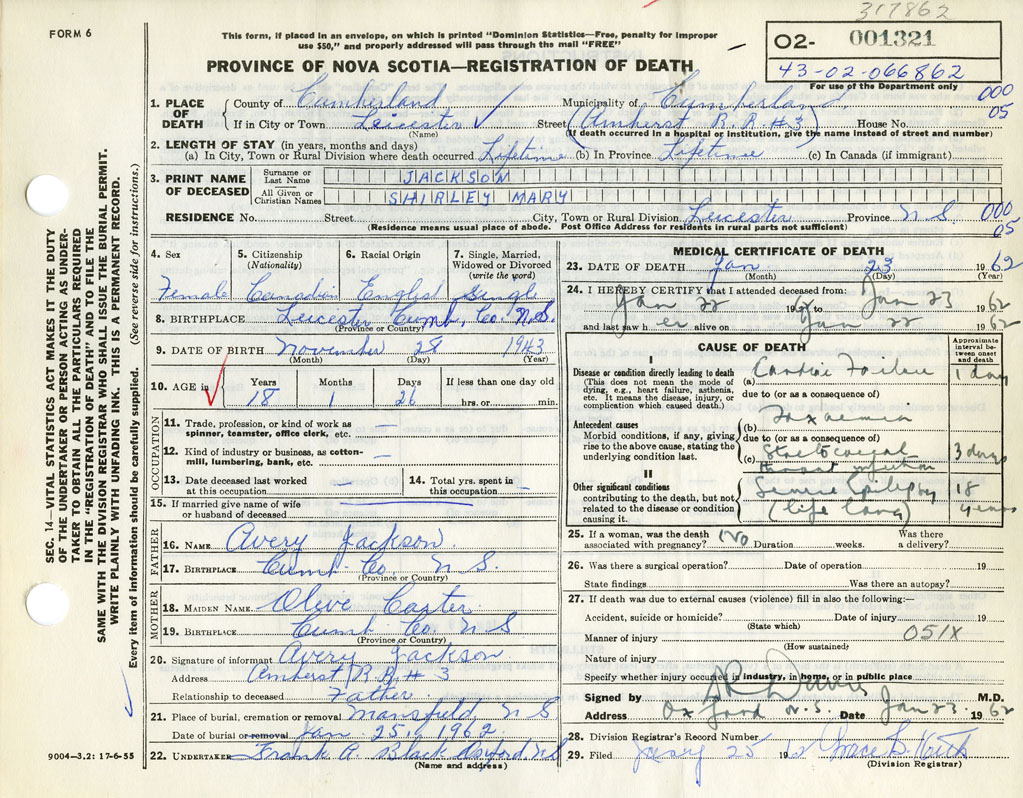 317862
FORM 6
This form, if placed in an envelope, on which is printed "Dominion Statistics—Free, penalty for improper
use $50," and properly addressed will pass through the mail "FREE"
02- 001321
43-02-066862
For use of the Department only
PROVINCE OF NOVA SCOTIA—REGISTRATION OF DEATH
000
05
1. PLACE OF DEATH
County of Cumberland Municipality of Cumberland
If in City or Town Leicester ✓ Street (Amherst R.R #3) House No.
(Name) (If death occurred in a hospital or institution, give the name instead of street and number)
2. LENGTH OF STAY (in years, months and days)
(a) In City, Town or Rural Division where death occurred Lifetime (b) In Province Lifetime (c) In Canada (if immigrant)
3. PRINT NAME OF DECEASED
Surname or Last Name JACKSON
All Given or Christian Names SHIRLEY MARY
RESIDENCE No. Street City, Town or Rural Division Leicester Province N S 000
05
(Residence means usual place of abode. Post Office Address for residents in rural parts not sufficient)
4. Sex 5. Citizenship (Nationality) 6. Racial Origin 7. Single, Married, Widowed or Divorced (write the word)
Female Canadian English Single
8. BIRTHPLACE Leicester Cumb. Co. N.S.
(Province or Country)
9. DATE OF BIRTH November 28 1943
(Month) (Day) (Year)
10. AGE in Years Months Days If less than one day old
18 1 26 hrs. or min.
OCCUPATION
11. Trade, profession, or kind of work as spinner, teamster, office clerk, etc. —
12. Kind of industry or business, as cotton-mill, lumbering, bank, etc. —
13. Date deceased last worked at this occupation — 14. Total yrs. spent in this occupation —
15. If married give name of wife or husband of deceased —
FATHER
16. NAME Avery Jackson
17. BIRTHPLACE Cumb. Co. N S.
(Province or Country)
MOTHER
18. MAIDEN NAME Olive Carter
19. BIRTHPLACE Cumb Co. N S
(Province or Country)
20. Signature of informant Avery Jackson
Address Amherst R.R # 3
Relationship to deceased Father
21. Place of burial, cremation or removal Mansfield, N S
Date of burial or removal Jan 25, 1962
22. UNDERTAKER Frank R. Black Oxford N S
(Name and address)
MEDICAL CERTIFICATE OF DEATH
23. DATE OF DEATH Jan 23 1962
(Month) (Day) (Year)
24. I HEREBY CERTIFY that I attended deceased from:
Jan 22 19 to Jan 23 1962
and last saw her alive on Jan 22 1962
CAUSE OF DEATH
Approximate interval between onset and death
I
Disease or condition directly leading to death
(This does not mean the mode of dying, e.g., heart failure, asthenia, etc. It means the disease, injury, or complication which caused death.)
(a) Cardiac Failure 1 day
due to (or as a consequence of)
Antecedent causes
Morbid conditions, if any, giving rise to the above cause, stating the underlying condition last.
(b) Toxaemia
due to (or as a consequence of)
(c) Streptococcal throat infection 3 days
II
Other significant conditions
contributing to the death, but not related to the disease or condition causing it.
Severe Epilepsy 18
(life long) years
25. If a woman, was the death associated with pregnancy? No Duration weeks. Was there a delivery?
26. Was there a surgical operation? Date of operation 19
State findings Was there an autopsy?
27. If death was due to external causes (violence) fill in also the following:—
Accident, suicide or homicide? Date of injury 19
(State which)
Manner of injury 051X
(How sustained)
Nature of injury
Specify whether injury occurred in industry, in home, or in public place
Signed by Davis M.D.
Address Oxford N.S. Date Jan 23 1962
28. Division Registrar's Record Number
29. Filed 25 19 Grace B. Keith
(Division Registrar)
SEC. 14—VITAL STATISTICS ACT MAKES IT THE DUTY
OF THE UNDERTAKER OR PERSON ACTING AS UNDER-
TAKER TO OBTAIN ALL THE PARTICULARS REQUIRED
IN THE "REGISTRATION OF DEATH" AND TO FILE THE
SAME WITH THE DIVISION REGISTRAR WHO SHALL ISSUE THE BURIAL PERMIT.
WRITE PLAINLY WITH UNFADING INK. THIS IS A PERMANENT RECORD.
Every item of information should be carefully supplied. (See reverse side for instructions.)
9004—3.2: 17-6-55